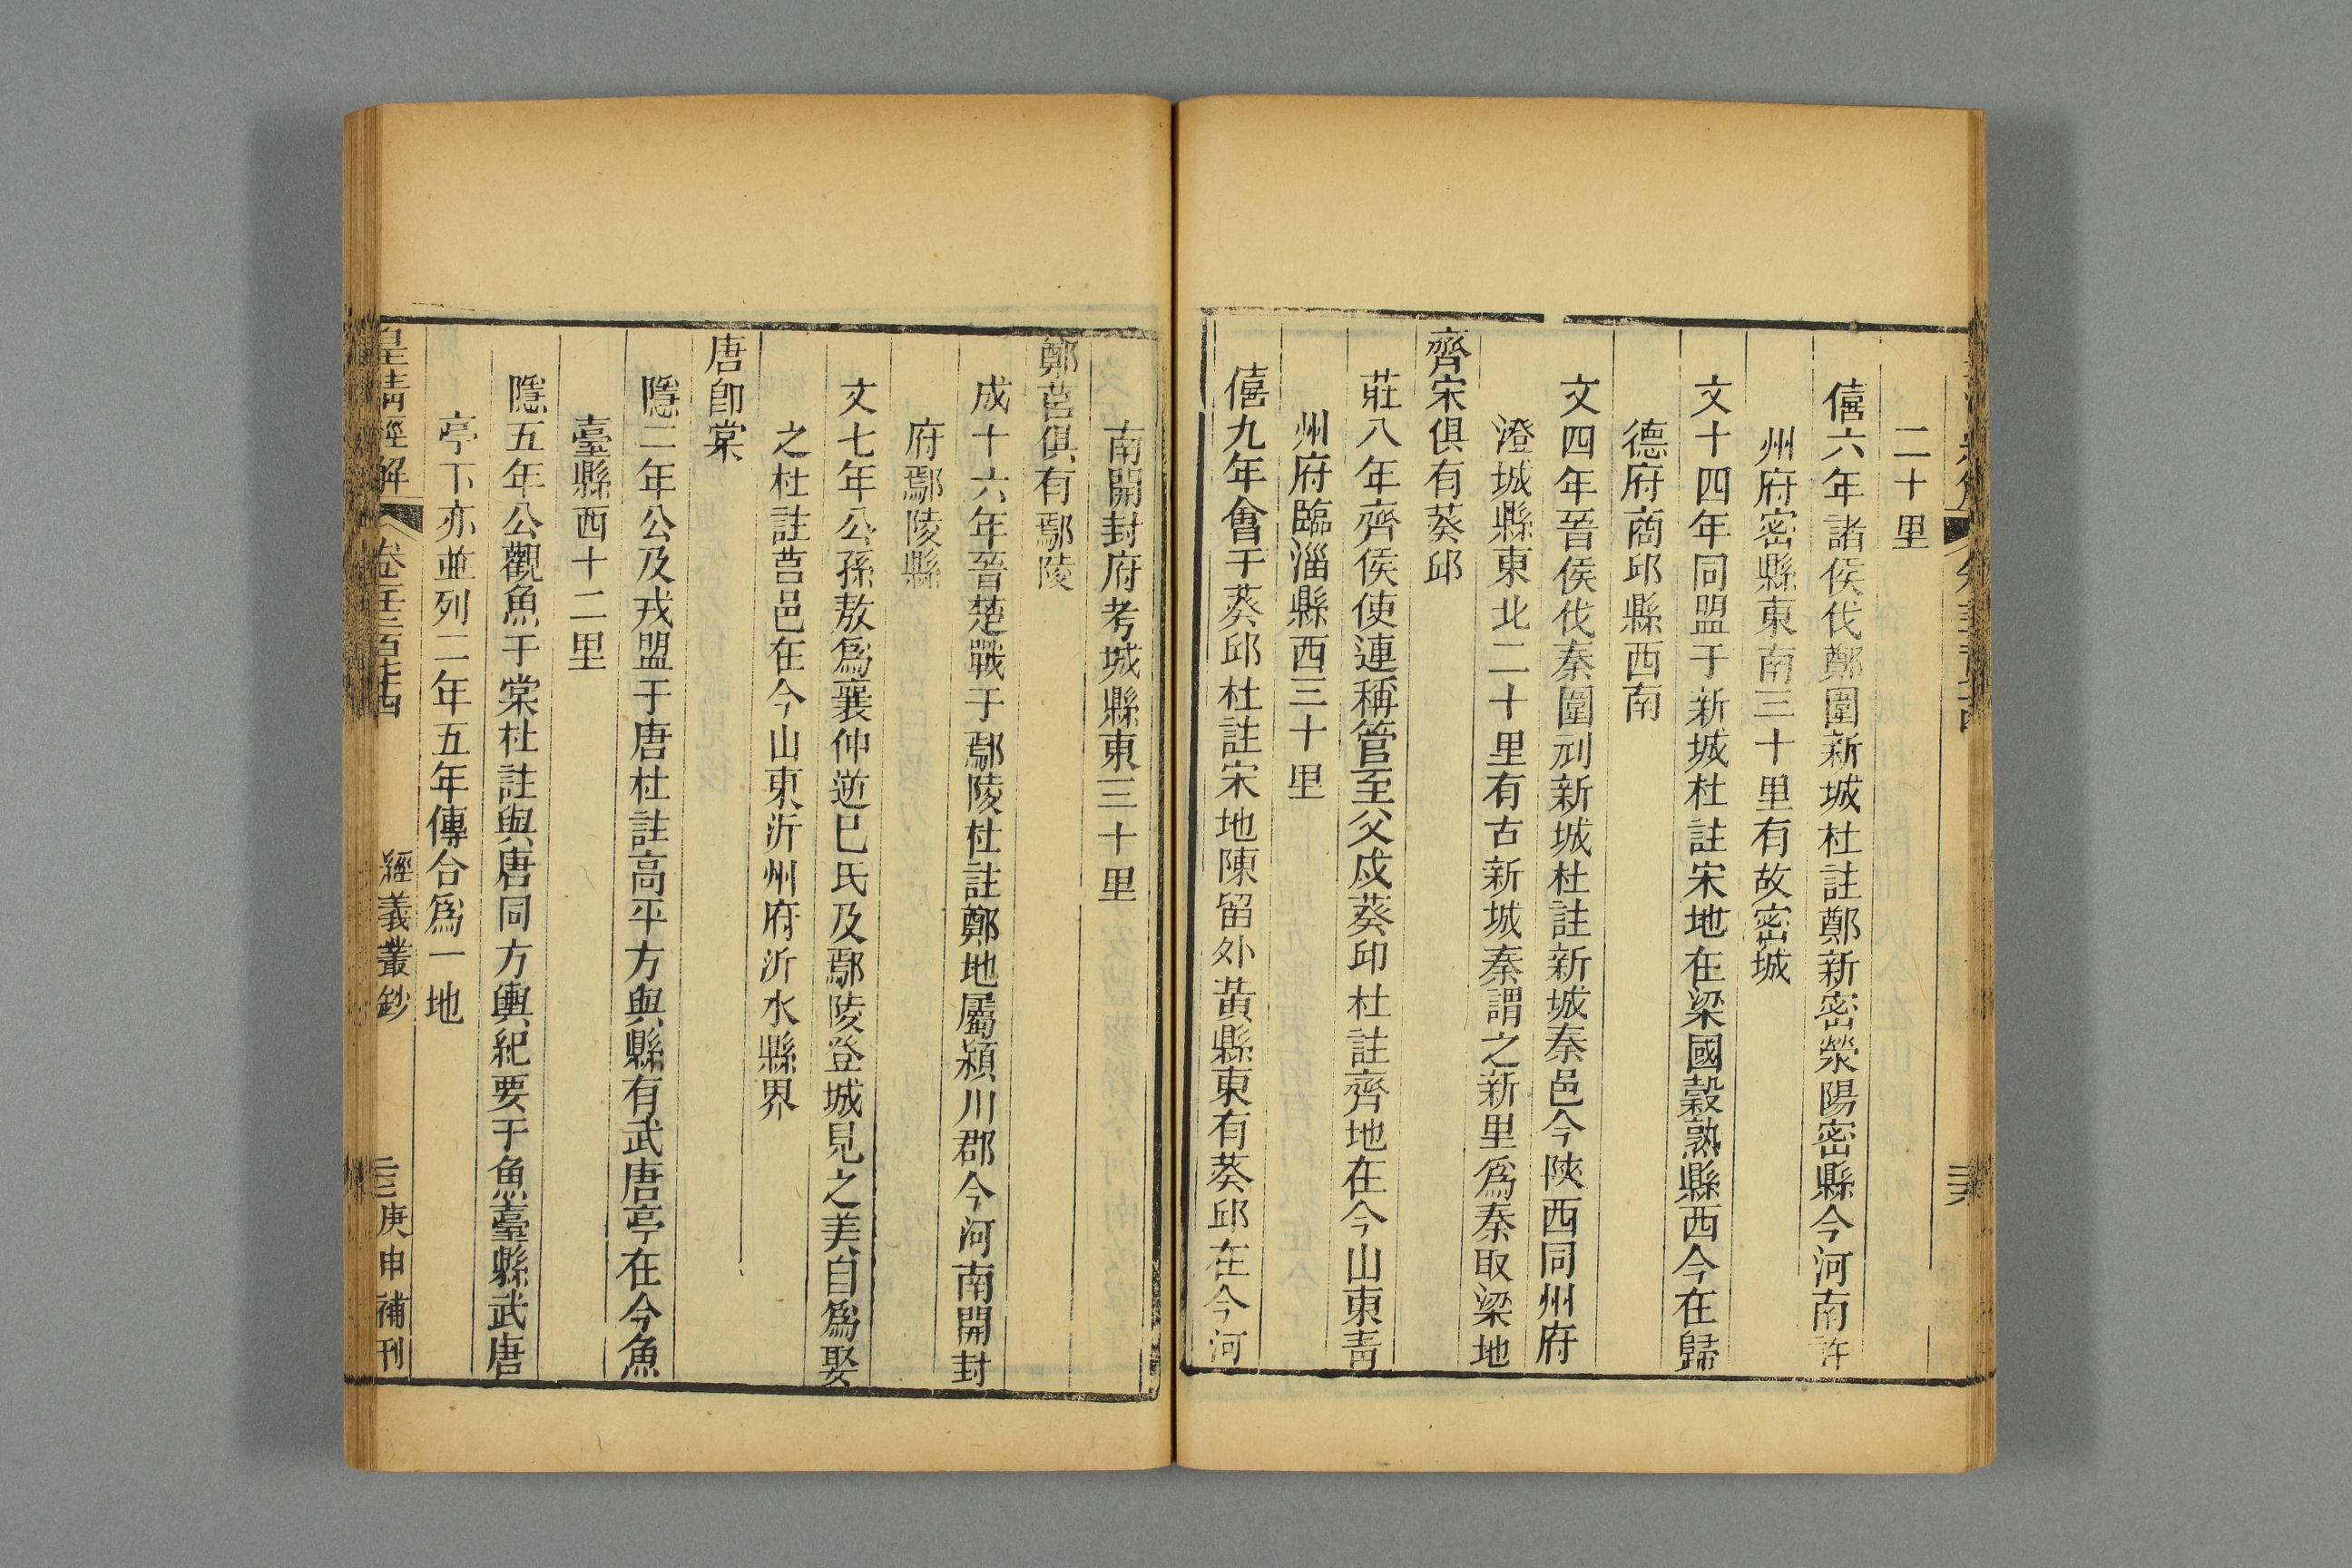 二十里
僖六年諸侯伐鄭圍新城杜註鄭新密滎陽密縣今河南許
州府密縣東南三十里有故密城
文十四年同盟于新城杜註宋地在梁國穀熟縣西今在歸
德府商邱縣西南
文四年晉侯伐秦圍刓新城杜註新城秦邑今陝西同州府
澄城縣東北二十里有古新城秦謂之新里爲秦取梁地
齊宋俱有葵邱
莊八年齊侯使連稱管至父戍葵邱杜註齊地在今山東青
州府臨淄縣西三十里
僖九年會于葵邱杜註宋地陳留外黃縣東有葵邱在今河
南開封府考城縣東三十里
鄭莒俱有鄢陵
成十六年晉楚戰于鄢陵杜註鄭地屬潁川郡今河南開封
府鄢陵縣
文七年公孫敖爲襄仲逆巳氏及鄢陵登城見之美自爲娶
之杜註莒邑在今山東沂州府沂水縣界
唐卽棠
隱二年公及戎盟于唐杜註高平方與縣有武唐亭在今魚
臺縣西十二里
隱五年公觀魚于棠杜註與唐同方輿紀要于魚臺縣武唐
亭下亦並列二年五年傳合爲一地
皇清經解 卷
經義叢鈔
庚申補刊